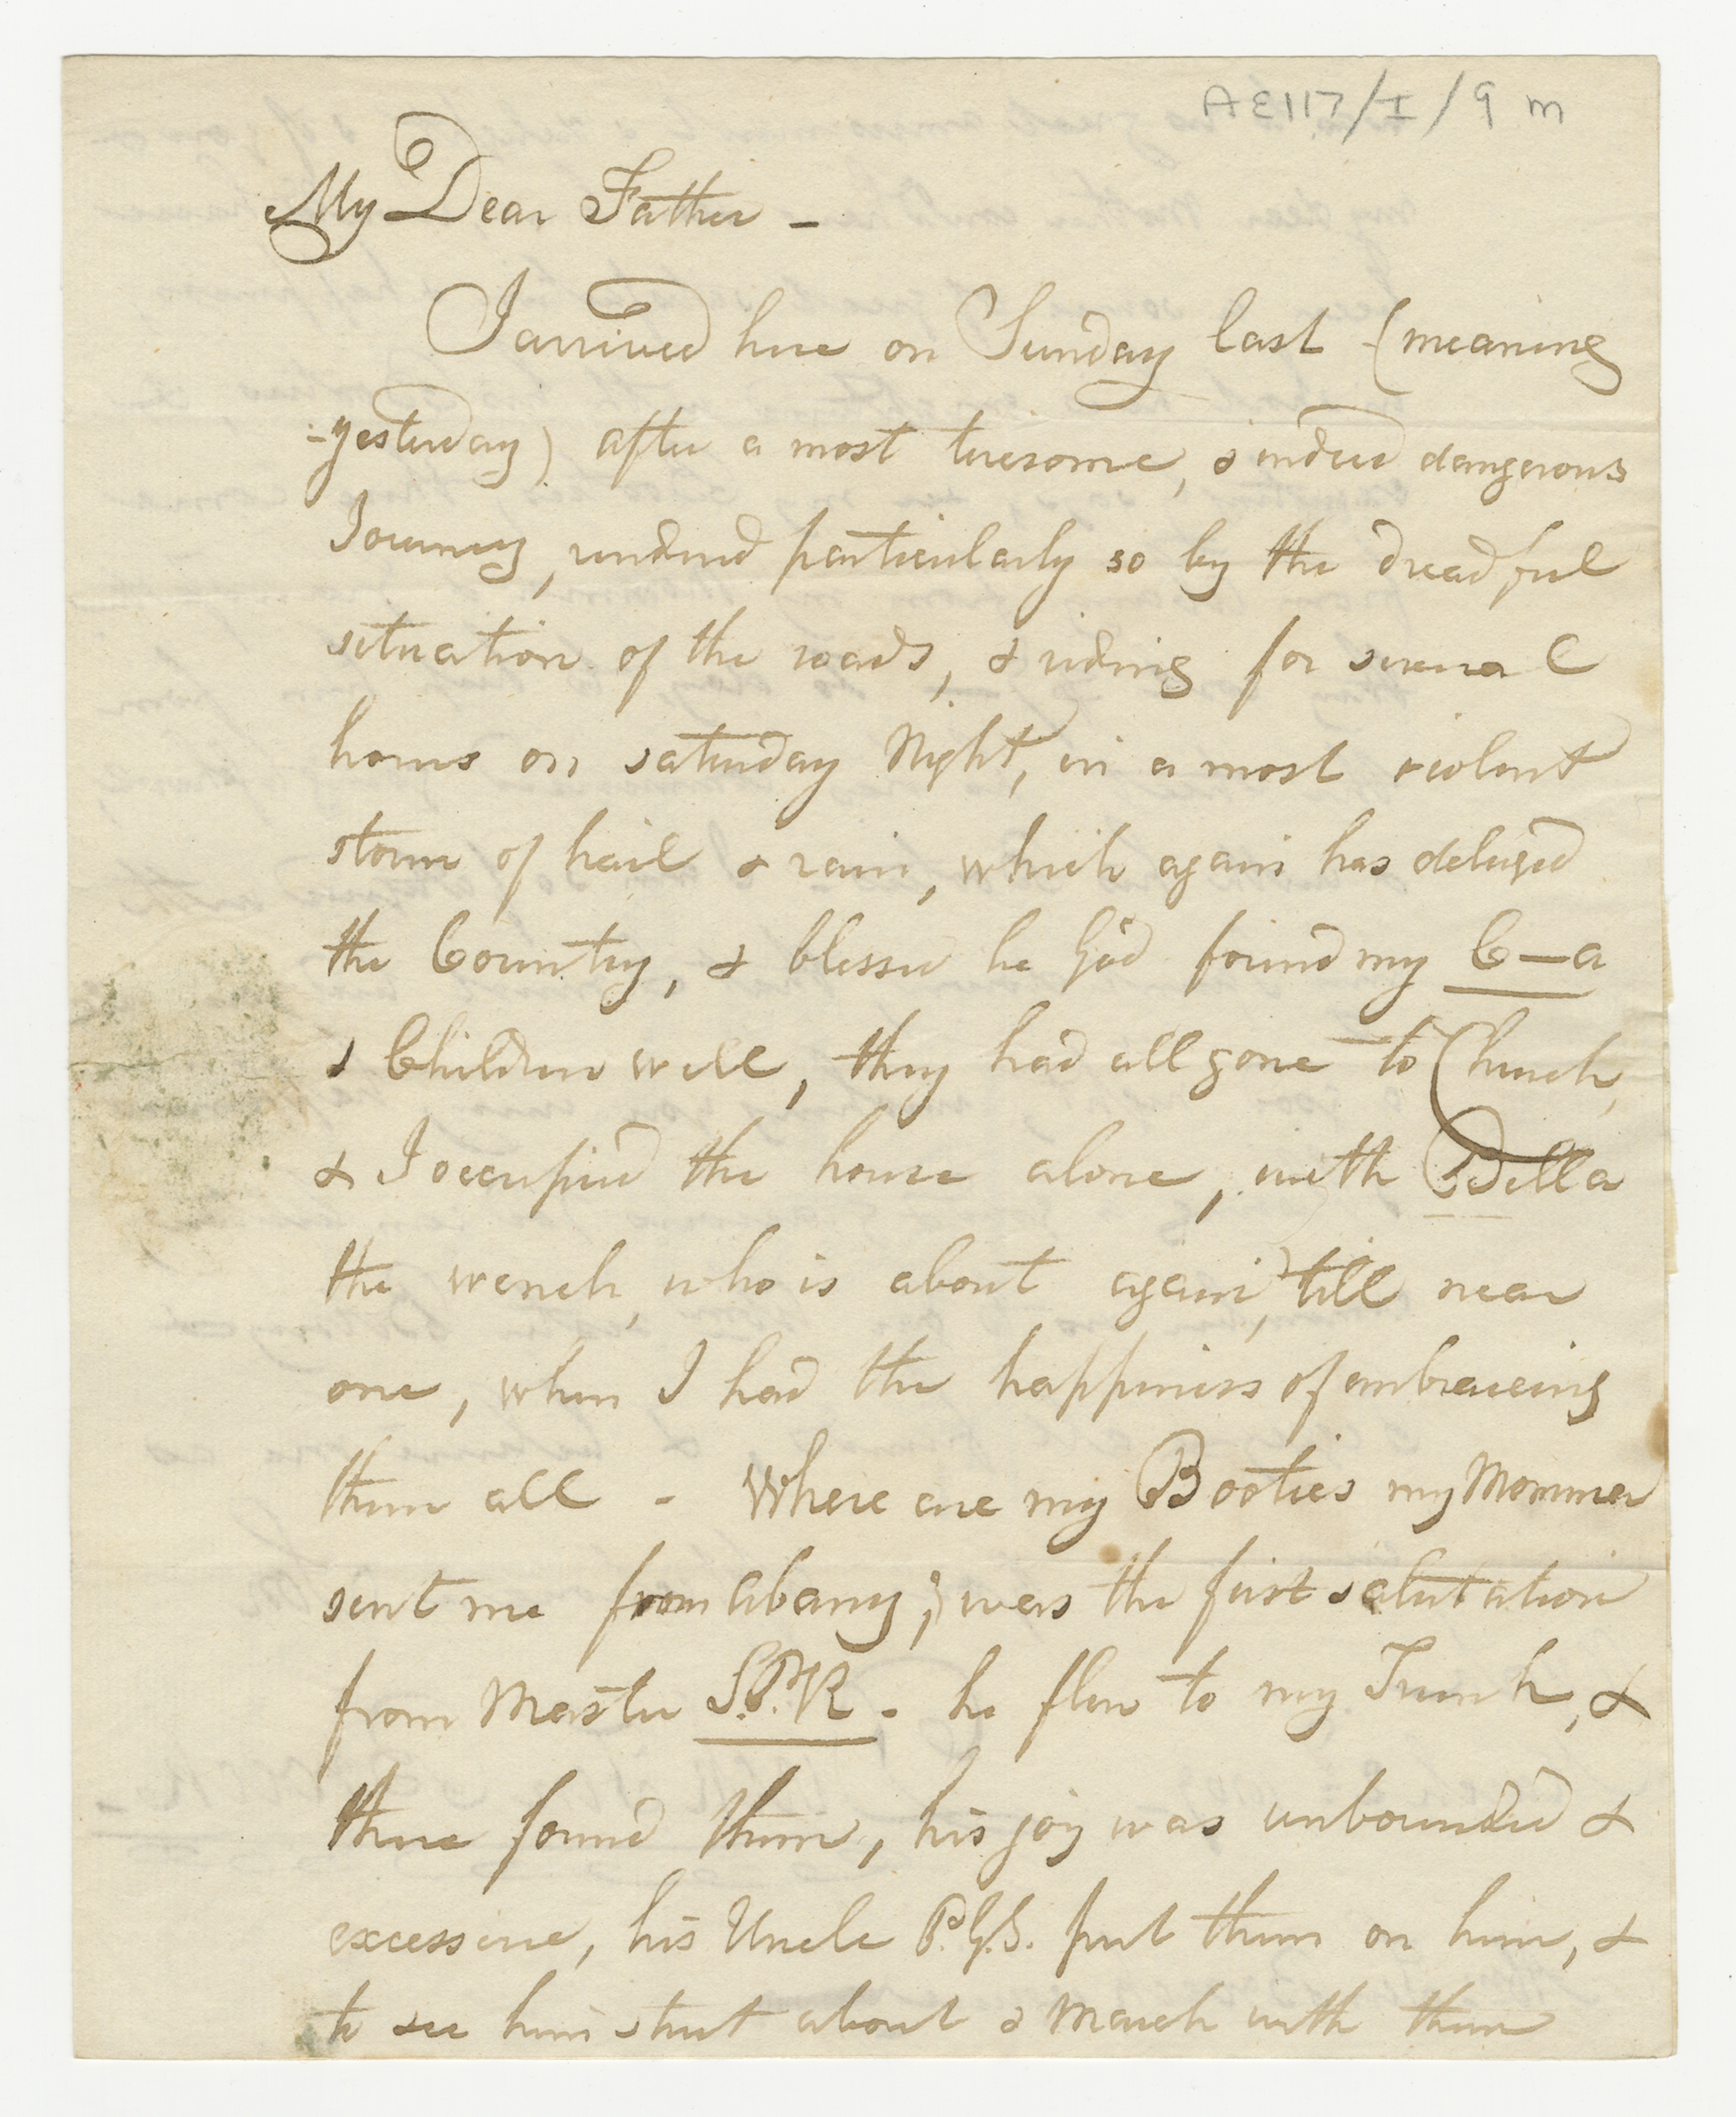 AE117/I/9 m
My Dear Father -
I arrived here on Sunday last (meaning
-yesterday) after a most tiresome, & indeed dangerous
Journey, rendered particularly so by the dreadful
situation of the roads, & riding for several
hours on saturday Night, in a most violent
storm of hail & rain, which again has deluged
the Country, & blessed be God found my C—a
& Children well, they had all gone to Church,
& I occupied the house alone, with Bella
the wench, who is about again, till near
one, when I had the happiness of embraceing
them all - Where are my Booties my Momma
sent me from Albany; was the first salutation
from Master S.V.R. - he flew to my Trunk, &
there found them, his joy was unbounded &
excessive, his Uncle P.G.S. put them on him, &
to see him strut about & March with them